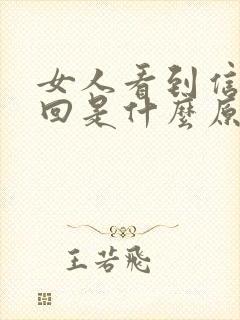 女人看到信
回是什麼原
王若飛